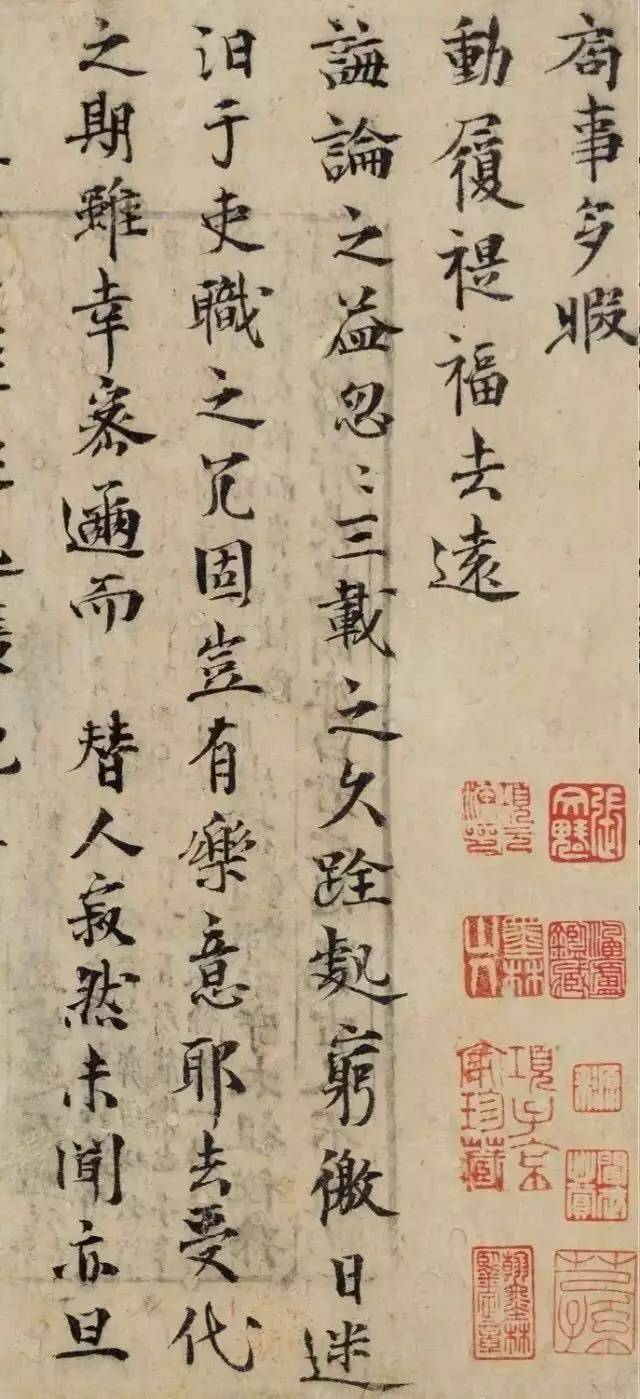 局事多暇
動履禔福去遠
誨論之益忽〻三載之久跧處窮徼日迷
汩于吏職之冗固豈有樂意耶去受代
之期雖幸密邇而 替人寂然未聞亦旦
張文魁
項子京家珍藏